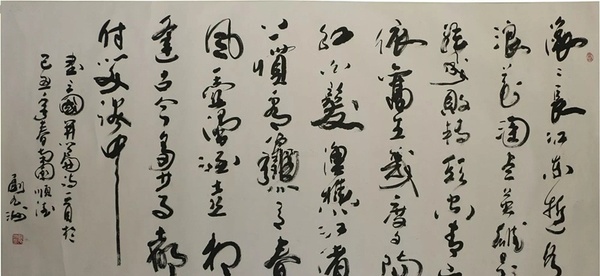 滚〻長江东逝水
浪花淘尽英雄是
非成敗轉頭空青山
依舊在幾度夕陽
紅白髮漁樵江渚
上慣看龝月春
風一壺濁酒喜相
逢古今多少事都
付笑談中
書三國開篇詞一首於
己丑年春